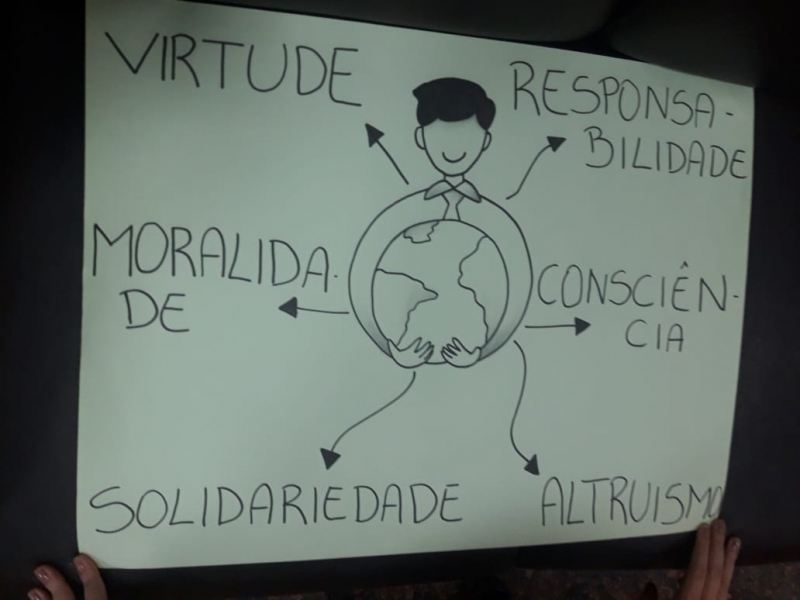 VIRTUDE
RESPONSA-
BILIDADE
MORALIDA-
DE
CONSCIÊN-
CIA
SOLIDARIEDADE
ALTRUISMO